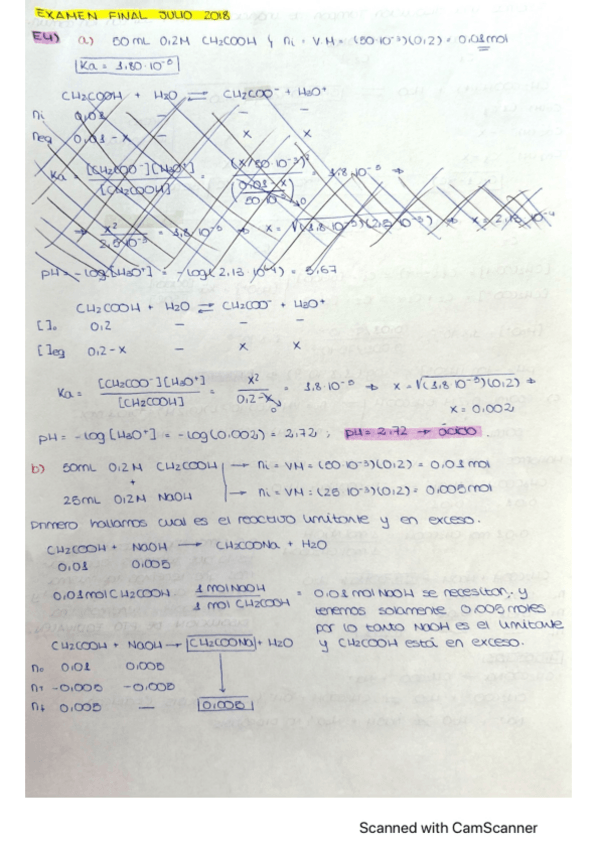 EXAMEN FINAL JULIO 2018
E4) a) 50 mL 0,2M CH2COOH ; ni = V·M = (50·10⁻³)(0,2) = 0,01 mol
Ka = 1.80·10⁻⁵
CH2COOH + H2O ⇌ CH2COO⁻ + H3O⁺
ni 0,01 — — —
neq 0,01-x — x x
Ka = [CH2COO⁻][H3O⁺] / [CH2COOH] = (x/50·10⁻³)² / (0,01-x / 50·10⁻³) = 1,8·10⁻⁵ →
→ x² / 2,5·10⁻⁵ = 1,8·10⁻⁵ → x = √(1,8·10⁻⁵)(2,5·10⁻³) → x = 2,13·10⁻⁴
pH = -log[H3O⁺] = -log(2,13·10⁻⁴) = 5,67
CH2COOH + H2O ⇌ CH2COO⁻ + H3O⁺
[ ]o 0,2 — — —
[ ]eq 0,2-x — x x
Ka = [CH2COO⁻][H3O⁺] / [CH2COOH] = x² / 0,2-x = 1,8·10⁻⁵ → x = √(1,8·10⁻⁵)(0,2) →
0
x = 0,002
pH = -log[H3O⁺] = -log(0,002) = 2,72 ; pH = 2,72 → ácido.
b) 50mL 0,2M CH2COOH → ni = VM = (50·10⁻³)(0,2) = 0,01 mol
+
25mL 0,2M NaOH → ni = VM = (25·10⁻³)(0,2) = 0,005 mol
Primero hallamos cual es el reactivo limitante y en exceso.
CH2COOH + NaOH → CH2COONa + H2O
0,01 0,005
0,01 mol CH2COOH 1 mol NaOH / 1 mol CH2COOH = 0,01 mol NaOH se necesitan, y
tenemos solamente 0,005 moles
por lo tanto NaOH es el limitante
y CH2COOH está en exceso.
CH2COOH + NaOH → CH2COONa + H2O
no 0,01 0,005
nr -0,005 -0,005
nf 0,005 — 0,005
Scanned with CamScanner